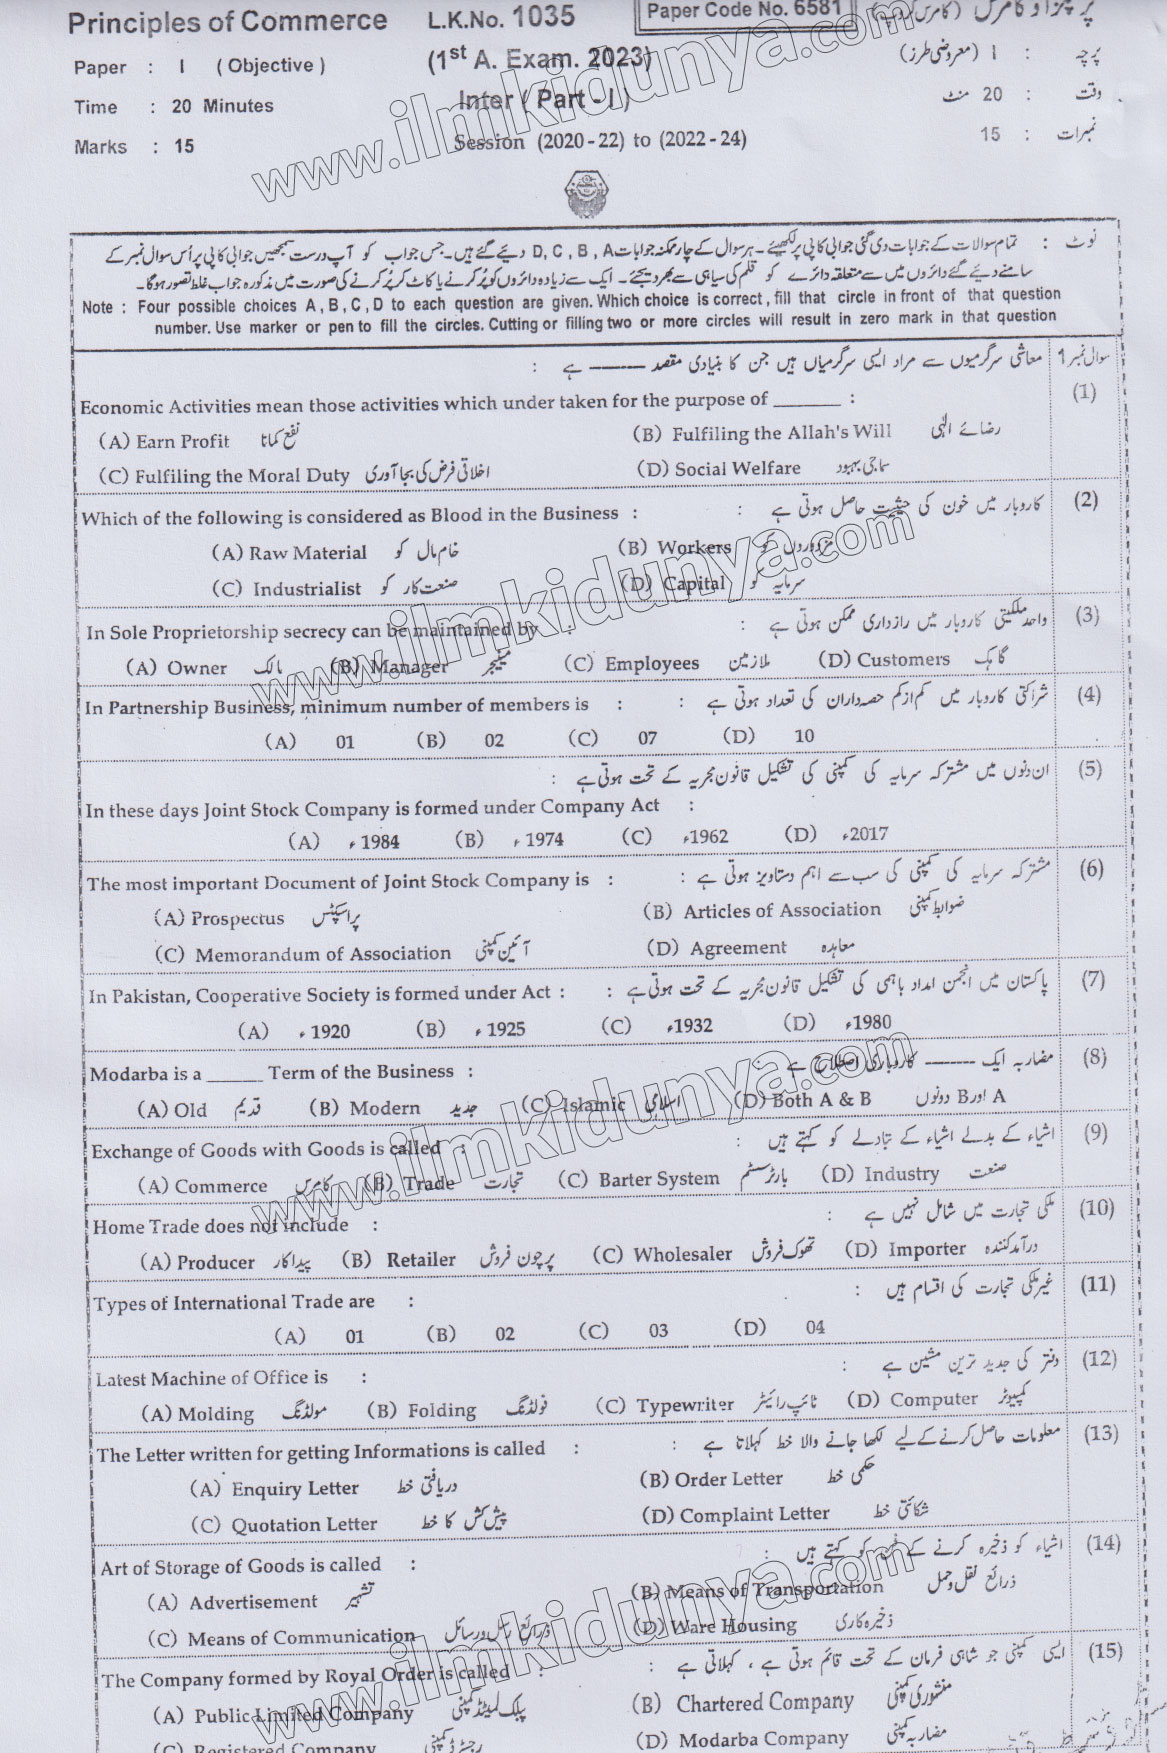 Principles of Commerce L.K.No. 1035 Paper Code No. 6581
Paper : I ( Objective ) (1st A. Exam. 2023) پرچہ : I (معروضی طرز)
Time : 20 Minutes Inter ( Part - I ) وقت : 20 منٹ
Marks : 15 Session (2020-22) to (2022-24) نمبرات : 15
نوٹ : تمام سوالات کے جوابات دی گئی جوابی کاپی پر لکھیئے۔ ہر سوال کے چار ممکنہ جوابات D, C, B, A دیے گئے ہیں۔ جس جواب کو آپ درست سمجھیں جوابی کاپی پر اُس سوال نمبر کے
سامنے دئیے گئے دائروں میں سے متعلقہ دائرے کو قلم کی سیاہی سے بھر دیجئے۔ ایک سے زیادہ دائروں کو پُر کرنے یا کاٹ کر پُر کرنے کی صورت میں مذکورہ جواب غلط تصور ہوگا۔
Note : Four possible choices A , B , C , D to each question are given. Which choice is correct , fill that circle in front of that question
number. Use marker or pen to fill the circles. Cutting or filling two or more circles will result in zero mark in that question
سوال نمبر 1 معاشی سرگرمیوں سے مراد ایسی سرگرمیاں ہیں جن کا بنیادی مقصد ------ ہے :
(1)
Economic Activities mean those activities which under taken for the purpose of _______ :
(A) Earn Profit نفع کمانا (B) Fulfiling the Allah's Will رضائے الٰہی
(C) Fulfiling the Moral Duty اخلاقی فرض کی بجا آوری (D) Social Welfare سماجی بہبود
Which of the following is considered as Blood in the Business : کاروبار میں خون کی حیثیت حاصل ہوتی ہے : (2)
(A) Raw Material خام مال کو (B) Workers مزدوروں کو
(C) Industrialist صنعت کار کو (D) Capital سرمایہ کو
In Sole Proprietorship secrecy can be maintained by : واحد ملکیتی کاروبار میں رازداری ممکن ہوتی ہے : (3)
(A) Owner مالک (B) Manager مینیجر (C) Employees ملازمین (D) Customers گاہک
In Partnership Business, minimum number of members is : شراکتی کاروبار میں کم از کم حصہ داران کی تعداد ہوتی ہے : (4)
(A) 01 (B) 02 (C) 07 (D) 10
ان دنوں میں مشترکہ سرمایہ کی کمپنی کی تشکیل قانون مجریہ کے تحت ہوتی ہے : (5)
In these days Joint Stock Company is formed under Company Act :
(A) 1984ء (B) 1974ء (C) 1962ء (D) 2017ء
The most important Document of Joint Stock Company is : مشترکہ سرمایہ کی کمپنی کی سب سے اہم دستاویز ہوتی ہے : (6)
(A) Prospectus پراسپکٹس (B) Articles of Association ضوابط کمپنی
(C) Memorandum of Association آئین کمپنی (D) Agreement معاہدہ
In Pakistan, Cooperative Society is formed under Act : پاکستان میں انجمن امداد باہمی کی تشکیل قانون مجریہ کے تحت ہوتی ہے : (7)
(A) 1920ء (B) 1925ء (C) 1932ء (D) 1980ء
Modarba is a ______ Term of the Business : مضاربہ ایک ------ کاروباری اصطلاح ہے : (8)
(A) Old قدیم (B) Modern جدید (C) Islamic اسلامی (D) Both A & B A اور B دونوں
Exchange of Goods with Goods is called : اشیاء کے بدلے اشیاء کے تبادلے کو کہتے ہیں : (9)
(A) Commerce کامرس (B) Trade تجارت (C) Barter System بارٹر سسٹم (D) Industry صنعت
Home Trade does not include : ملکی تجارت میں شامل نہیں ہے : (10)
(A) Producer پیداکار (B) Retailer پرچون فروش (C) Wholesaler تھوک فروش (D) Importer درآمد کنندہ
Types of International Trade are : غیر ملکی تجارت کی اقسام ہیں : (11)
(A) 01 (B) 02 (C) 03 (D) 04
Latest Machine of Office is : دفتر کی جدید ترین مشین ہے : (12)
(A) Molding مولڈنگ (B) Folding فولڈنگ (C) Typewriter ٹائپ رائیٹر (D) Computer کمپیوٹر
The Letter written for getting Informations is called : معلومات حاصل کرنے کے لیے لکھا جانے والا خط کہلاتا ہے : (13)
(A) Enquiry Letter دریافتی خط (B) Order Letter حکمی خط
(C) Quotation Letter پیش کش کا خط (D) Complaint Letter شکائتی خط
Art of Storage of Goods is called : اشیاء کو ذخیرہ کرنے کے فن کو کہتے ہیں : (14)
(A) Advertisement تشہیر (B) Means of Transportation ذرائع نقل وحمل
(C) Means of Communication ذرائع رسل ورسائل (D) Ware Housing ذخیرہ کاری
The Company formed by Royal Order is called : ایسی کمپنی جو شاہی فرمان کے تحت قائم ہوتی ہے ، کہلاتی ہے : (15)
(A) Public Limited Company پبلک لمیٹڈ کمپنی (B) Chartered Company منشوری کمپنی
(C) Registered Company رجسٹرڈ کمپنی (D) Modarba Company مضاربہ کمپنی
www.ilmkidunya.com
www.ilmkidunya.com
www.ilmkidunya.com
www.ilmkidunya.com